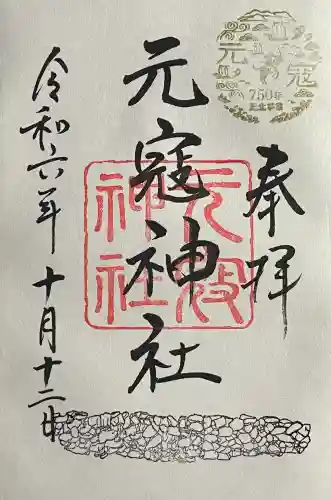 奉拝
元寇神社
令和六年十月十二日
元寇
750年
元寇神社